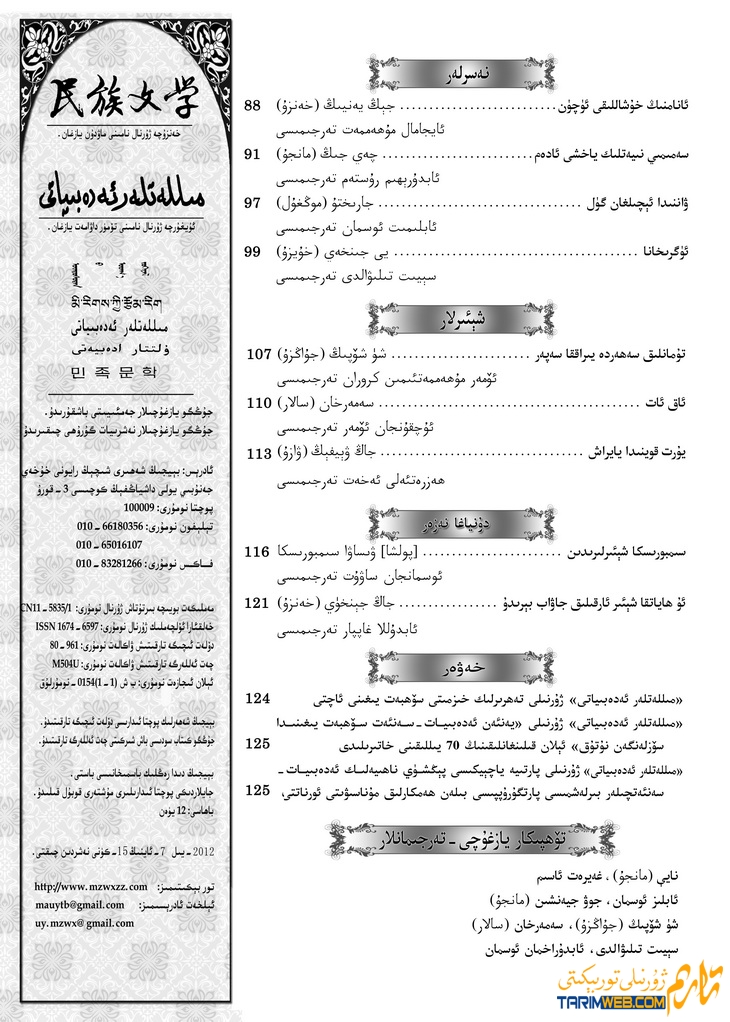 民族文学
خەنزۇچە ژۇرنال نامىنى ماۋدۇن يازغان.
مىللەتلەر ئەدەبىياتى
ئۇيغۇرچە ژۇرنال نامىنى تۆمۈر داۋامەت يازغان.
མི་རིགས་ཀྱི་རྩོམ་རིག
مىللەتلەر ئەدەبىياتى
ۇلتتار ادەبيەتى
민족문학
جۇڭگو يازغۇچىلار جەمئىيىتى باشقۇرىدۇ.
جۇڭگو يازغۇچىلار نەشرىيات گۇرۇھى چىقىرىدۇ
ئادرېس: بېيجىڭ شەھىرى شىچېڭ رايونى خۇخەي
جەنۇبىي يولى داشياڭفېڭ كوچىسى 3 ـ قورۇ
پوچتا نومۇرى: 100009
تېلېفون نومۇرى: 66180356 ـ 010
65016107 ـ 010
فـاكـس نومۇرى: 83281266 ـ 010
مەملىكەت بويىچە بىرتۇتاش ژۇرنال نومۇرى: CN11 ـ 5835/1
خەلقئارا ئۆلچەملىك ژۇرنال نومۇرى: ISSN 1674 ـ 6597
دۆلەت ئىچىگە تارقىتىش ۋاكالەت نومۇرى: 961 ـ 80
چەت ئەللەرگە تارقىتىش ۋاكالەت نومۇرى: M504U
ئېلان ئىجازەت نومۇرى: ب ش (1 ـ 1)0154 ـ نومۇرلۇق
بېيجىڭ شەھەرلىك پوچتا ئىدارىسى دۆلەت ئىچىگە تارقىتىدۇ.
جۇڭگو كىتاب سودىسى باش شىركىتى چەت ئەللەرگە تارقىتىدۇ.
بېيجىڭ دىدا رەڭلىك باسمىخانىسى باستى.
جايلاردىكى پوچتا ئىدارىلىرى مۇشتەرى قوبۇل قىلىدۇ.
باھاسى: 12 يۈەن
2012 ـ يىل 7 ـ ئاينىڭ 15 ـ كۈنى نەشردىن چىقتى.
تور بېكىتىمىز: http://www.mzwxzz.com
ئېلخەت ئادرېسىمىز: mauytb@gmail.com
uy.mzwx@gmail.com
نەسرلەر
ئانامنىڭ خۇشاللىقى ئۈچۈن .......................... جېڭ يەنيىڭ (خەنزۇ) 88
ئايجامال مۇھەممەت تەرجىمىسى
سەمىمىي نىيەتلىك ياخشى ئادەم .......................... چەي جىڭ (مانجۇ) 91
ئابدۇرېھىم رۇستەم تەرجىمىسى
ۋاننىدا ئېچىلغان گۈل .......................... جارىختۇ (موڭغۇل) 97
ئابلىمىت ئوسمان تەرجىمىسى
ئۈگرىخانا .......................... يى جىنخەي (خۇيزۇ) 99
سېيىت تىلىۋالدى تەرجىمىسى
شېئىرلار
تۇمانلىق سەھەردە يىراققا سەپەر .......................... شۈ شۆپىڭ (جۇاڭزۇ) 107
ئۆمەر مۇھەممەتئىمىن كروران تەرجىمىسى
ئاق ئات .......................... سەمەرخان (سالار) 110
ئۇچقۇنجان ئۆمەر تەرجىمىسى
يۇرت قوينىدا يايراش .......................... جاڭ ۋېيفېڭ (ۋازۇ) 113
ھەزرەتئەلى ئەخەت تەرجىمىسى
دۇنياغا نەزەر
سىمبورىسكا شېئىرلىرىدىن .......................... [پولشا] ۋىساۋا سىمبورىسكا 116
ئوسمانجان ساۋۇت تەرجىمىسى
ئۇ ھاياتقا شېئىر ئارقىلىق جاۋاب بېرىدۇ .......................... جاڭ جېنخۈي (خەنزۇ) 121
ئابدۇللا غاپپار تەرجىمىسى
خەۋەر
«مىللەتلەر ئەدەبىياتى» ژۇرنىلى تەھرىرلىك خىزمىتى سۆھبەت يىغىنى ئاچتى 124
«مىللەتلەر ئەدەبىياتى» ژۇرنىلى «يەنئەن ئەدەبىيات ـ سەنئەت سۆھبەت يىغىنىدا
سۆزلەنگەن نۇتۇق» ئېلان قىلىنغانلىقىنىڭ 70 يىللىقىنى خاتىرىلىدى 125
«مىللەتلەر ئەدەبىياتى» ژۇرنىلى پارتىيە ياچېيكىسى پېڭشۈي ناھىيەلىك ئەدەبىيات ـ
سەنئەتچىلەر بىرلەشمىسى پارتگۇرۇپپىسى بىلەن ھەمكارلىق مۇناسىۋىتى ئورناتتى. 125
تۆھپىكار يازغۇچى ـ تەرجىمانلار
نايې (مانجۇ)، غەيرەت ئاسىم
ئابلىز ئوسمان، جوۋ جيەنشىن (مانجۇ)
شۈ شۆپىڭ (جۇاڭزۇ)، سەمەرخان (سالار)
سېيىت تىلىۋالدى، ئابدۇراخمان ئوسمان
تارىم ژۇرنىلى تور بېكىتى
TARIMWEB.COM